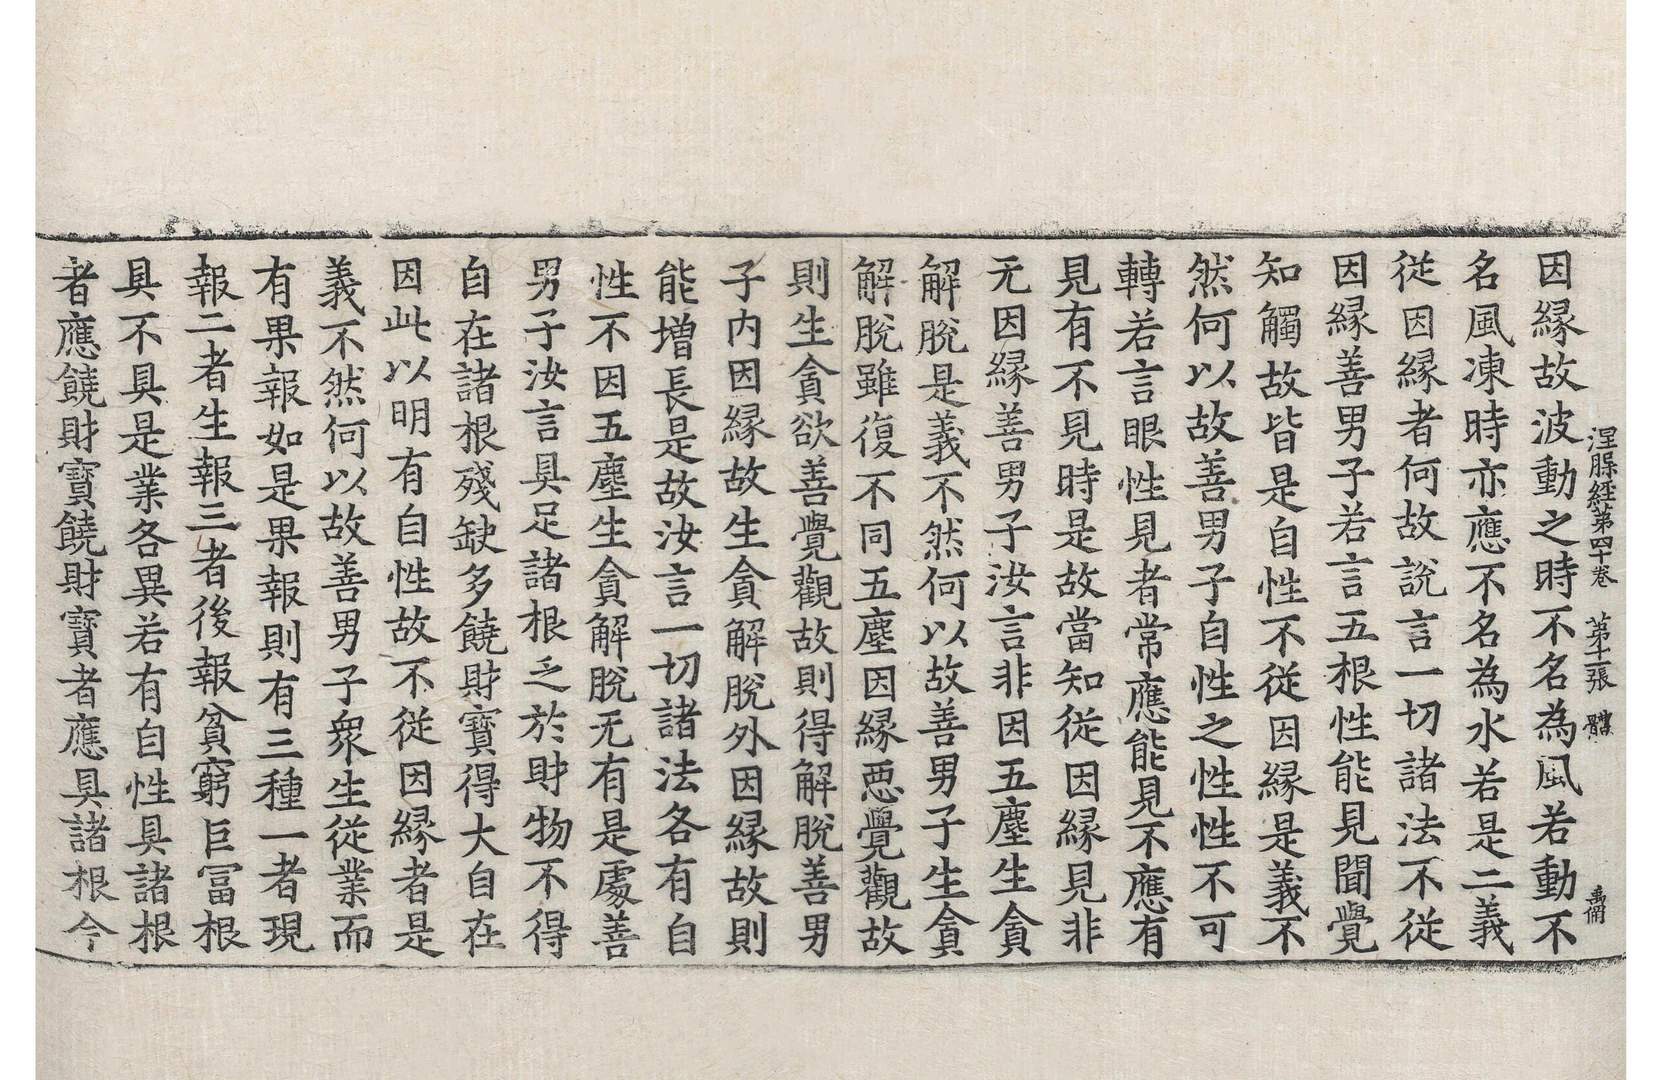 涅脲経第四十卷　第十二張　體　禹俑
因縁故波動之時不名為風若動不
名風凍時亦應不名為水若是二義
従因縁者何故說言一切諸法不従
因縁善男子若言五根性能見聞覺
知觸故皆是自性不従因縁是義不
然何以故善男子自性之性性不可
轉若言眼性見者常應能見不應有
見有不見時是故當知従因縁見非
无因縁善男子汝言非因五塵生貪
解脫是義不然何以故善男子生貪
解脫雖復不同五塵因縁惡覺觀故
則生貪欲善覺觀故則得解脫善男
子內因縁故生貪解脫外因縁故則
能增長是故汝言一切諸法各有自
性不因五塵生貪解脫无有是處善
男子汝言具足諸根乏於財物不得
自在諸根殘缺多饒財寶得大自在
因此以明有自性故不従因縁者是
義不然何以故善男子衆生従業而
有果報如是果報則有三種一者現
報二者生報三者後報貧窮巨冨根
具不具是業各異若有自性具諸根
者應饒財寶饒財寶者應具諸根今